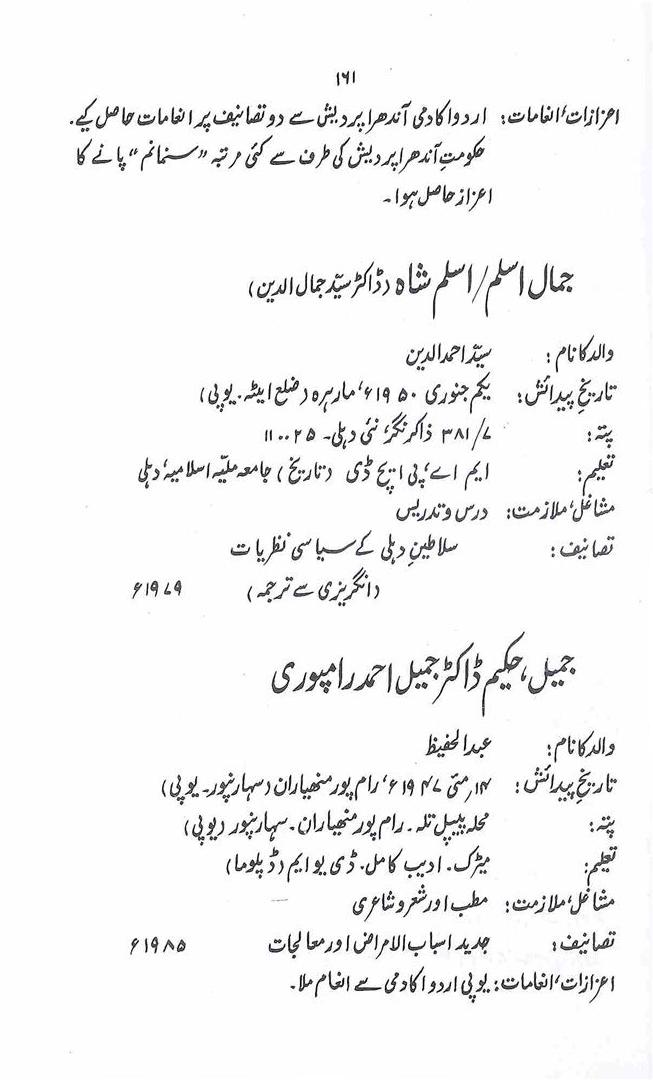 ۱۶۱
اعزازات، انعامات: اردو اکادمی آندھرا پردیش سے دو تصانیف پر انعامات حاصل کیے۔
حکومتِ آندھرا پردیش کی طرف سے کئی مرتبہ ”سنمانم“ پانے کا
اعزاز حاصل ہوا۔
جمال اسلم/اسلم شاہ (ڈاکٹر سیّد جمال الدین)
والد کا نام: سیّد احمد الدین
تاریخِ پیدائش: یکم جنوری ۱۹۵۰ء، مارہرہ (ضلع ایٹہ۔ یوپی)
پتہ: ۳۸۱/۷ ذاکر نگر، نئی دہلی۔ ۱۱۰۰۲۵
تعلیم: ایم اے، پی ایچ ڈی (تاریخ) جامعہ ملیّہ اسلامیہ، دہلی
مشاغل، ملازمت: درس و تدریس
تصانیف: سلاطینِ دہلی کے سیاسی نظریات
(انگریزی سے ترجمہ) ۱۹۷۹ء
جمیل، حکیم ڈاکٹر جمیل احمد رامپوری
والد کا نام: عبدالحفیظ
تاریخِ پیدائش: ۱۴؍مئی ۱۹۴۷ء، رام پور منھیاران (سہارنپور۔ یوپی)
پتہ: محلہ پیپل تلہ۔ رام پور منھیاران۔ سہارنپور (یوپی)
تعلیم: میٹرک۔ ادیب کامل۔ ڈی یو ایم (ڈپلوما)
مشاغل، ملازمت: مطب اور شعر و شاعری
تصانیف: جدید اسباب الامراض اور معالجات ۱۹۸۵ء
اعزازات، انعامات: یوپی اردو اکادمی سے انعام ملا۔